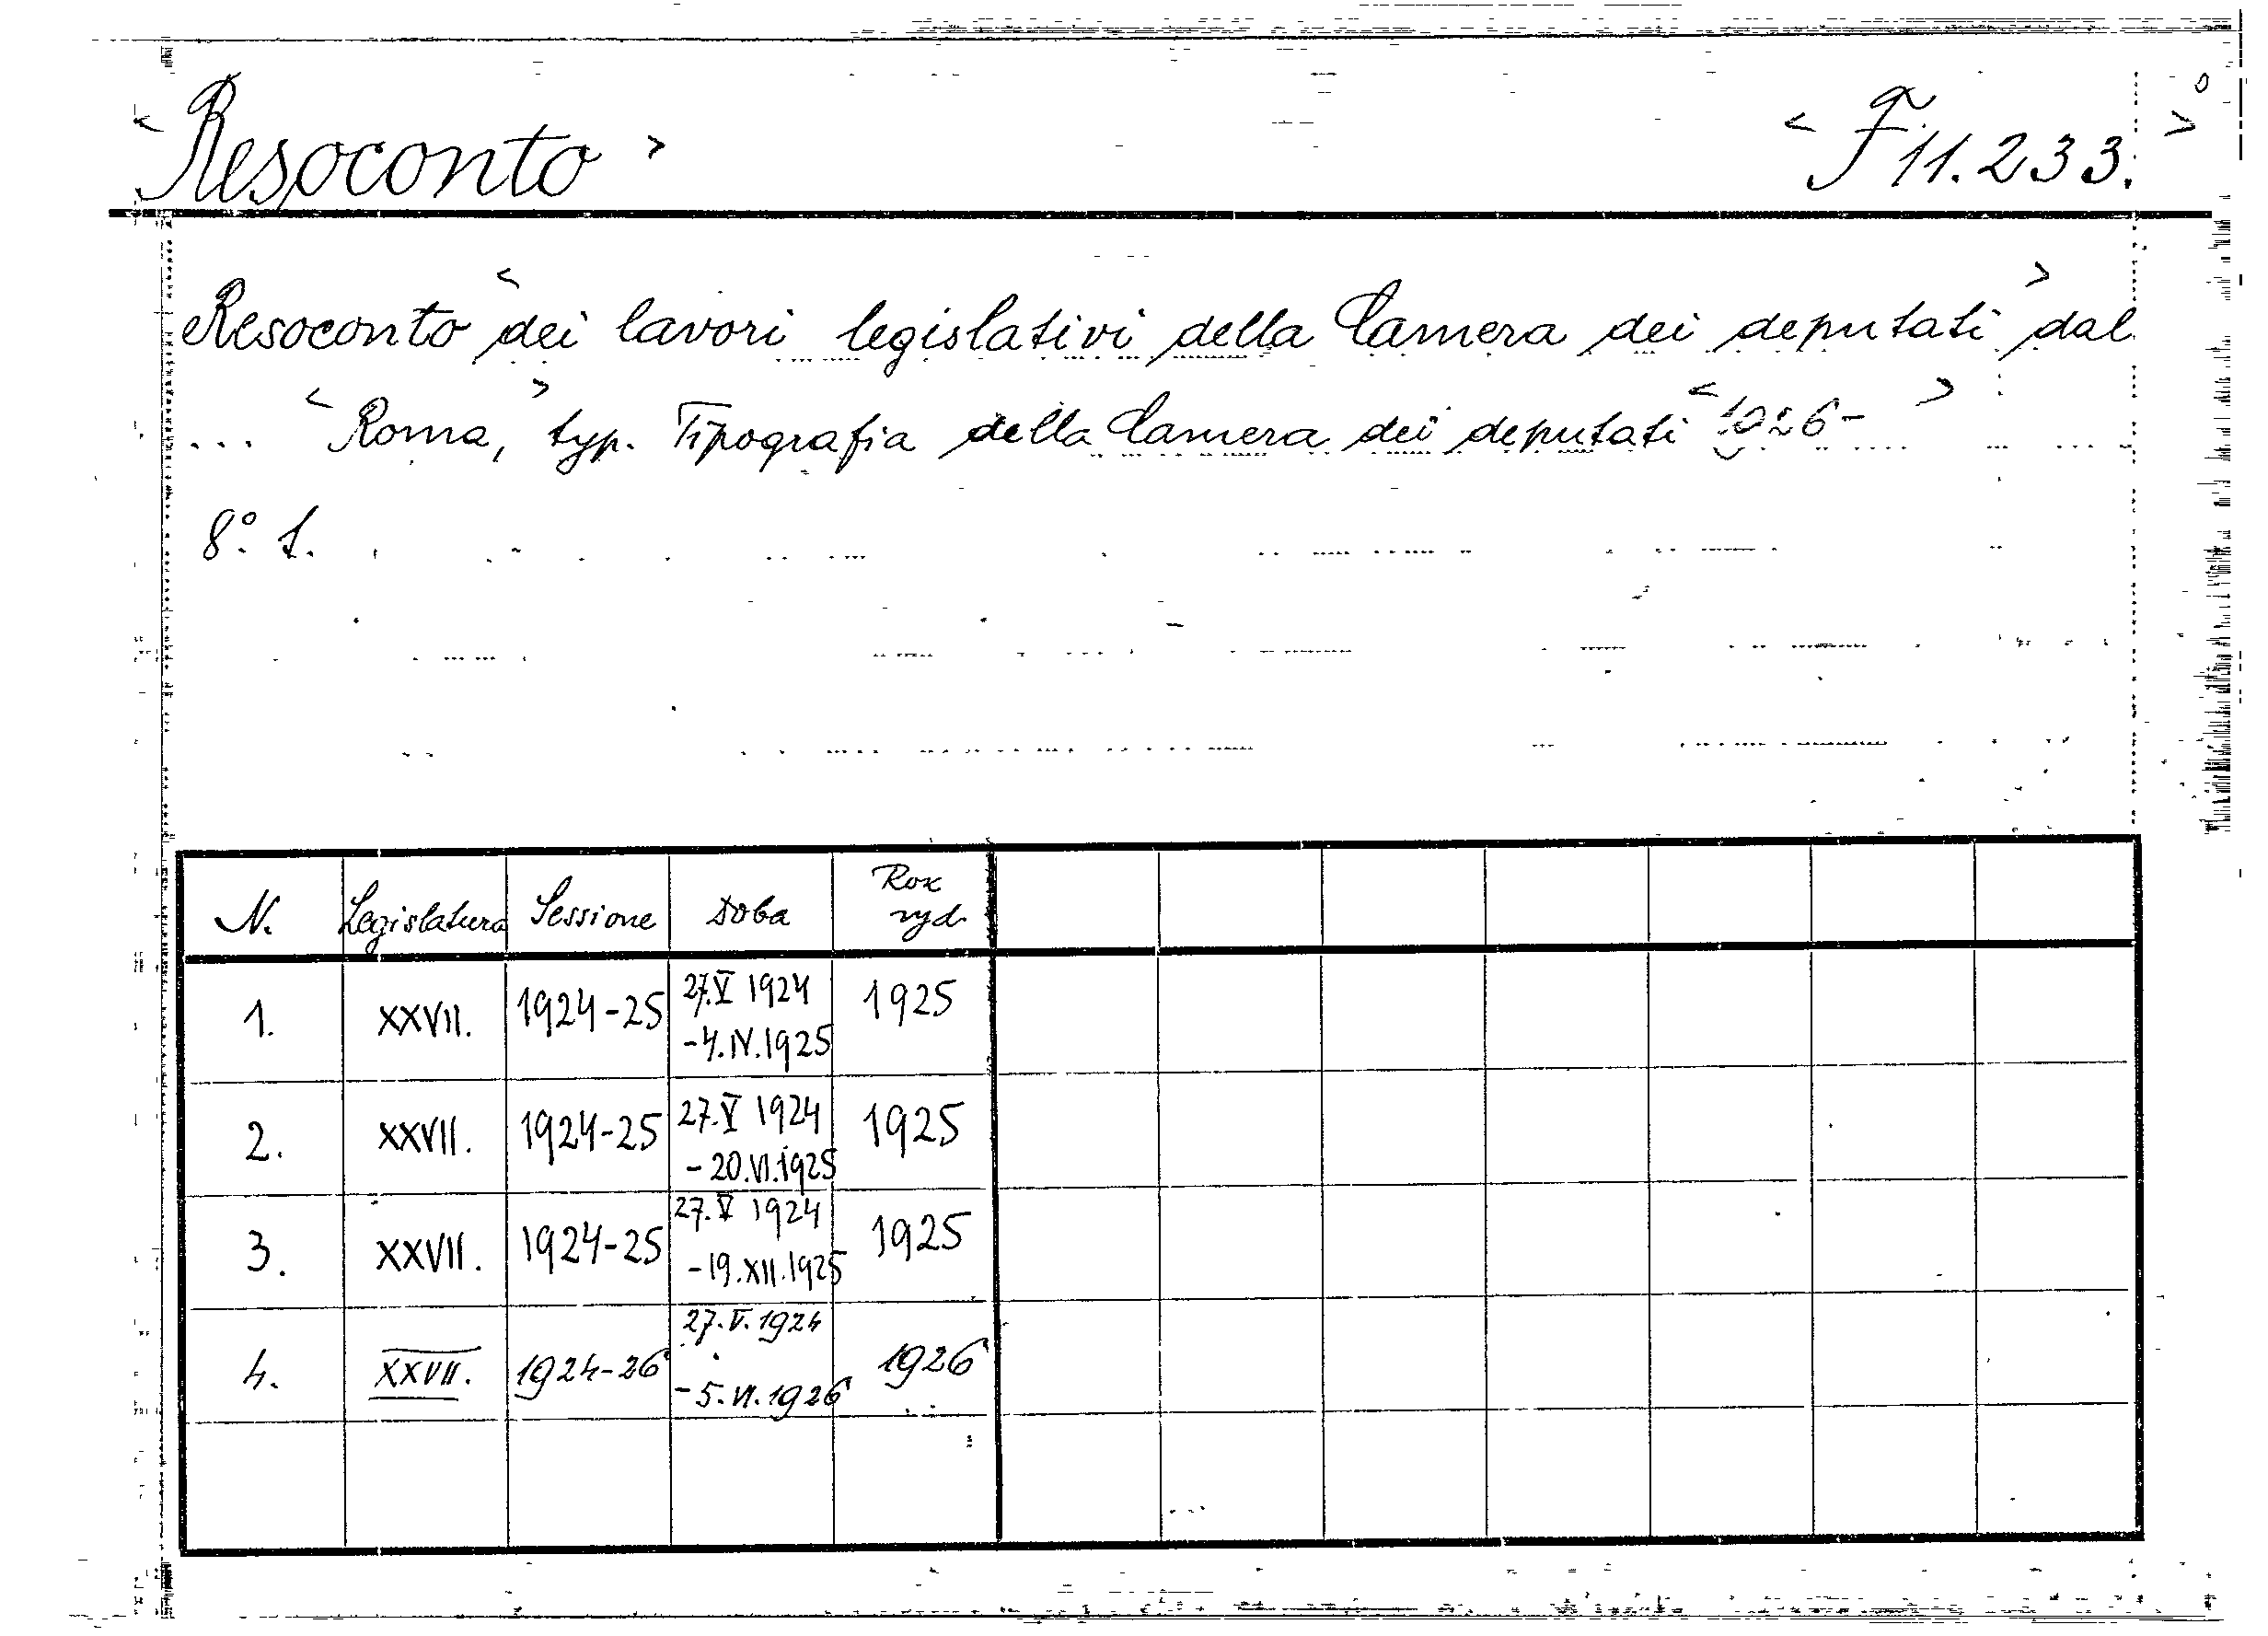 < Resoconto > < F 11.233. >
Resoconto < dei lavori legislativi della Camera dei deputati > dal
... < Roma, > typ. Tipografia della Camera dei deputati < 1926- >
8°. f.
N. Legislatura Sessione Doba Rok vyd.
1. XXVII. 1924-25 27.V 1924 -4.IV.1925 1925
2. XXVII. 1924-25 27.V 1924 -20.VI.1925 1925
3. XXVII. 1924-25 27.V 1924 -19.XII.1925 1925
4. XXVII. 1924-26 27.V.1924 -5.VI.1926 1926